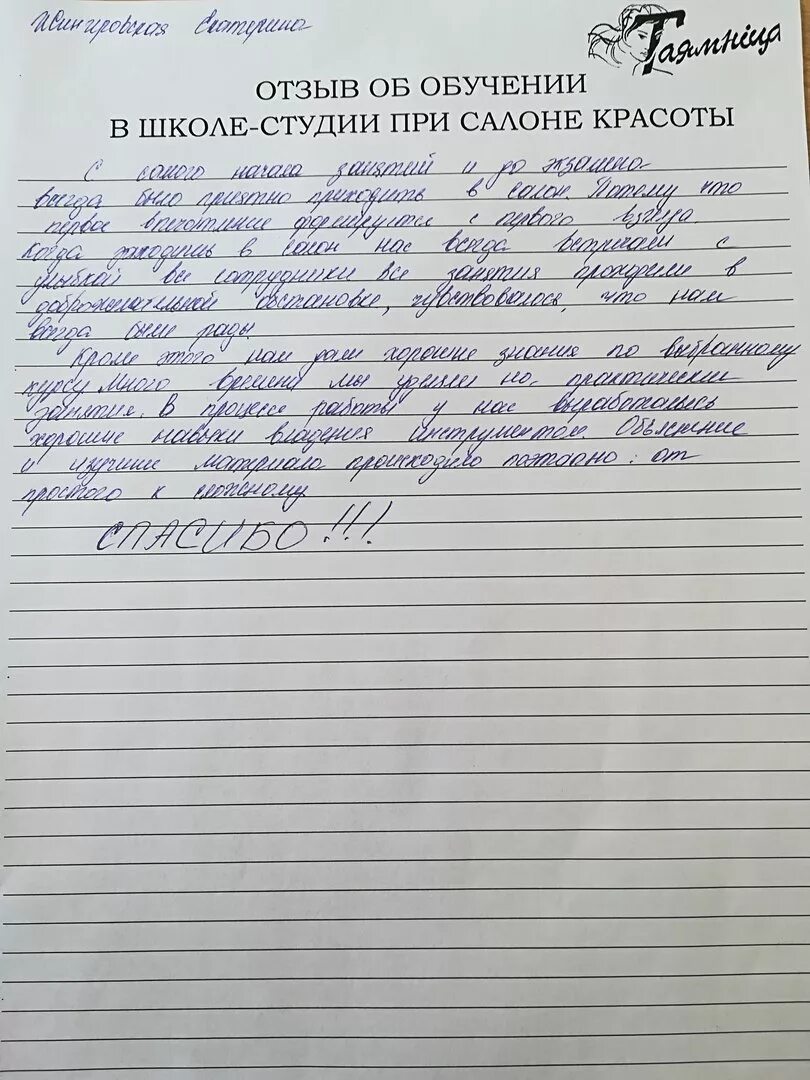 Екатерина
Таямніца
ОТЗЫВ ОБ ОБУЧЕНИИ
В ШКОЛЕ-СТУДИИ ПРИ САЛОНЕ КРАСОТЫ
С самого начала занятий и до экзамена
всегда было приятно приходить в салон. Потому что
первое впечатление формируется с первого взгляда.
Когда заходишь в салон нас всегда встречали с
улыбкой все сотрудники все занятия проходили в
доброжелательной обстановке, чувствовалось, что нам
всегда были рады.
Кроме этого нам дали хорошие знания по выбранному
курсу много времени мы уделили на практические
занятия. В процессе работы у нас выработались
хорошие навыки владения инструментом. Объяснение
и изучение материала происходило поэтапно: от
простого к сложному
СПАСИБО!!!